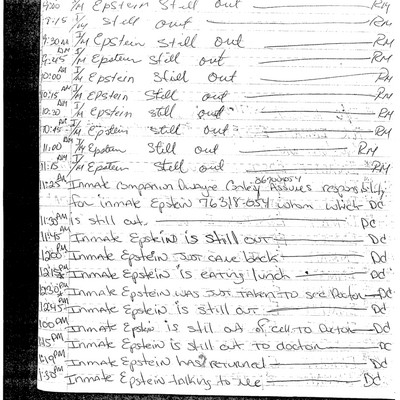 9:00 I/M Epstein Still out RM
9:15 I/M Still out RM
9:30 AM I/M Epstein Still out RM
9:45 AM I/M Epstein Still out RM
10:00 AM I/M Epstein Still out RM
10:15 AM I/M Epstein Still out RM
10:30 AM I/M Epstein still out RM
10:45 AM I/M Epstein still out RM
11:00 AM I/M Epstein Still out RM
11:15 AM I/M Epstein Still out RM
11:25 Inmate Companion Assumes responsibility
for inmate Epstein 76318-054 whom which DC
11:30 AM is still out. DC
11:45 AM Inmate Epstein is still out DC
12:00 PM Inmate Epstein Just came back DC
12:15 PM Inmate Epstein is eating lunch DC
12:30 PM Inmate Epstein was Just taken to see Doctor DC
12:45 PM Inmate Epstein is still out DC
1:00 PM Inmate Epstein is still out of cell to Doctor DC
1:15 PM Inmate Epstein is still out to doctor DC
1:19 PM Inmate Epstein has returned DC
1:30 PM Inmate Epstein talking to me DC